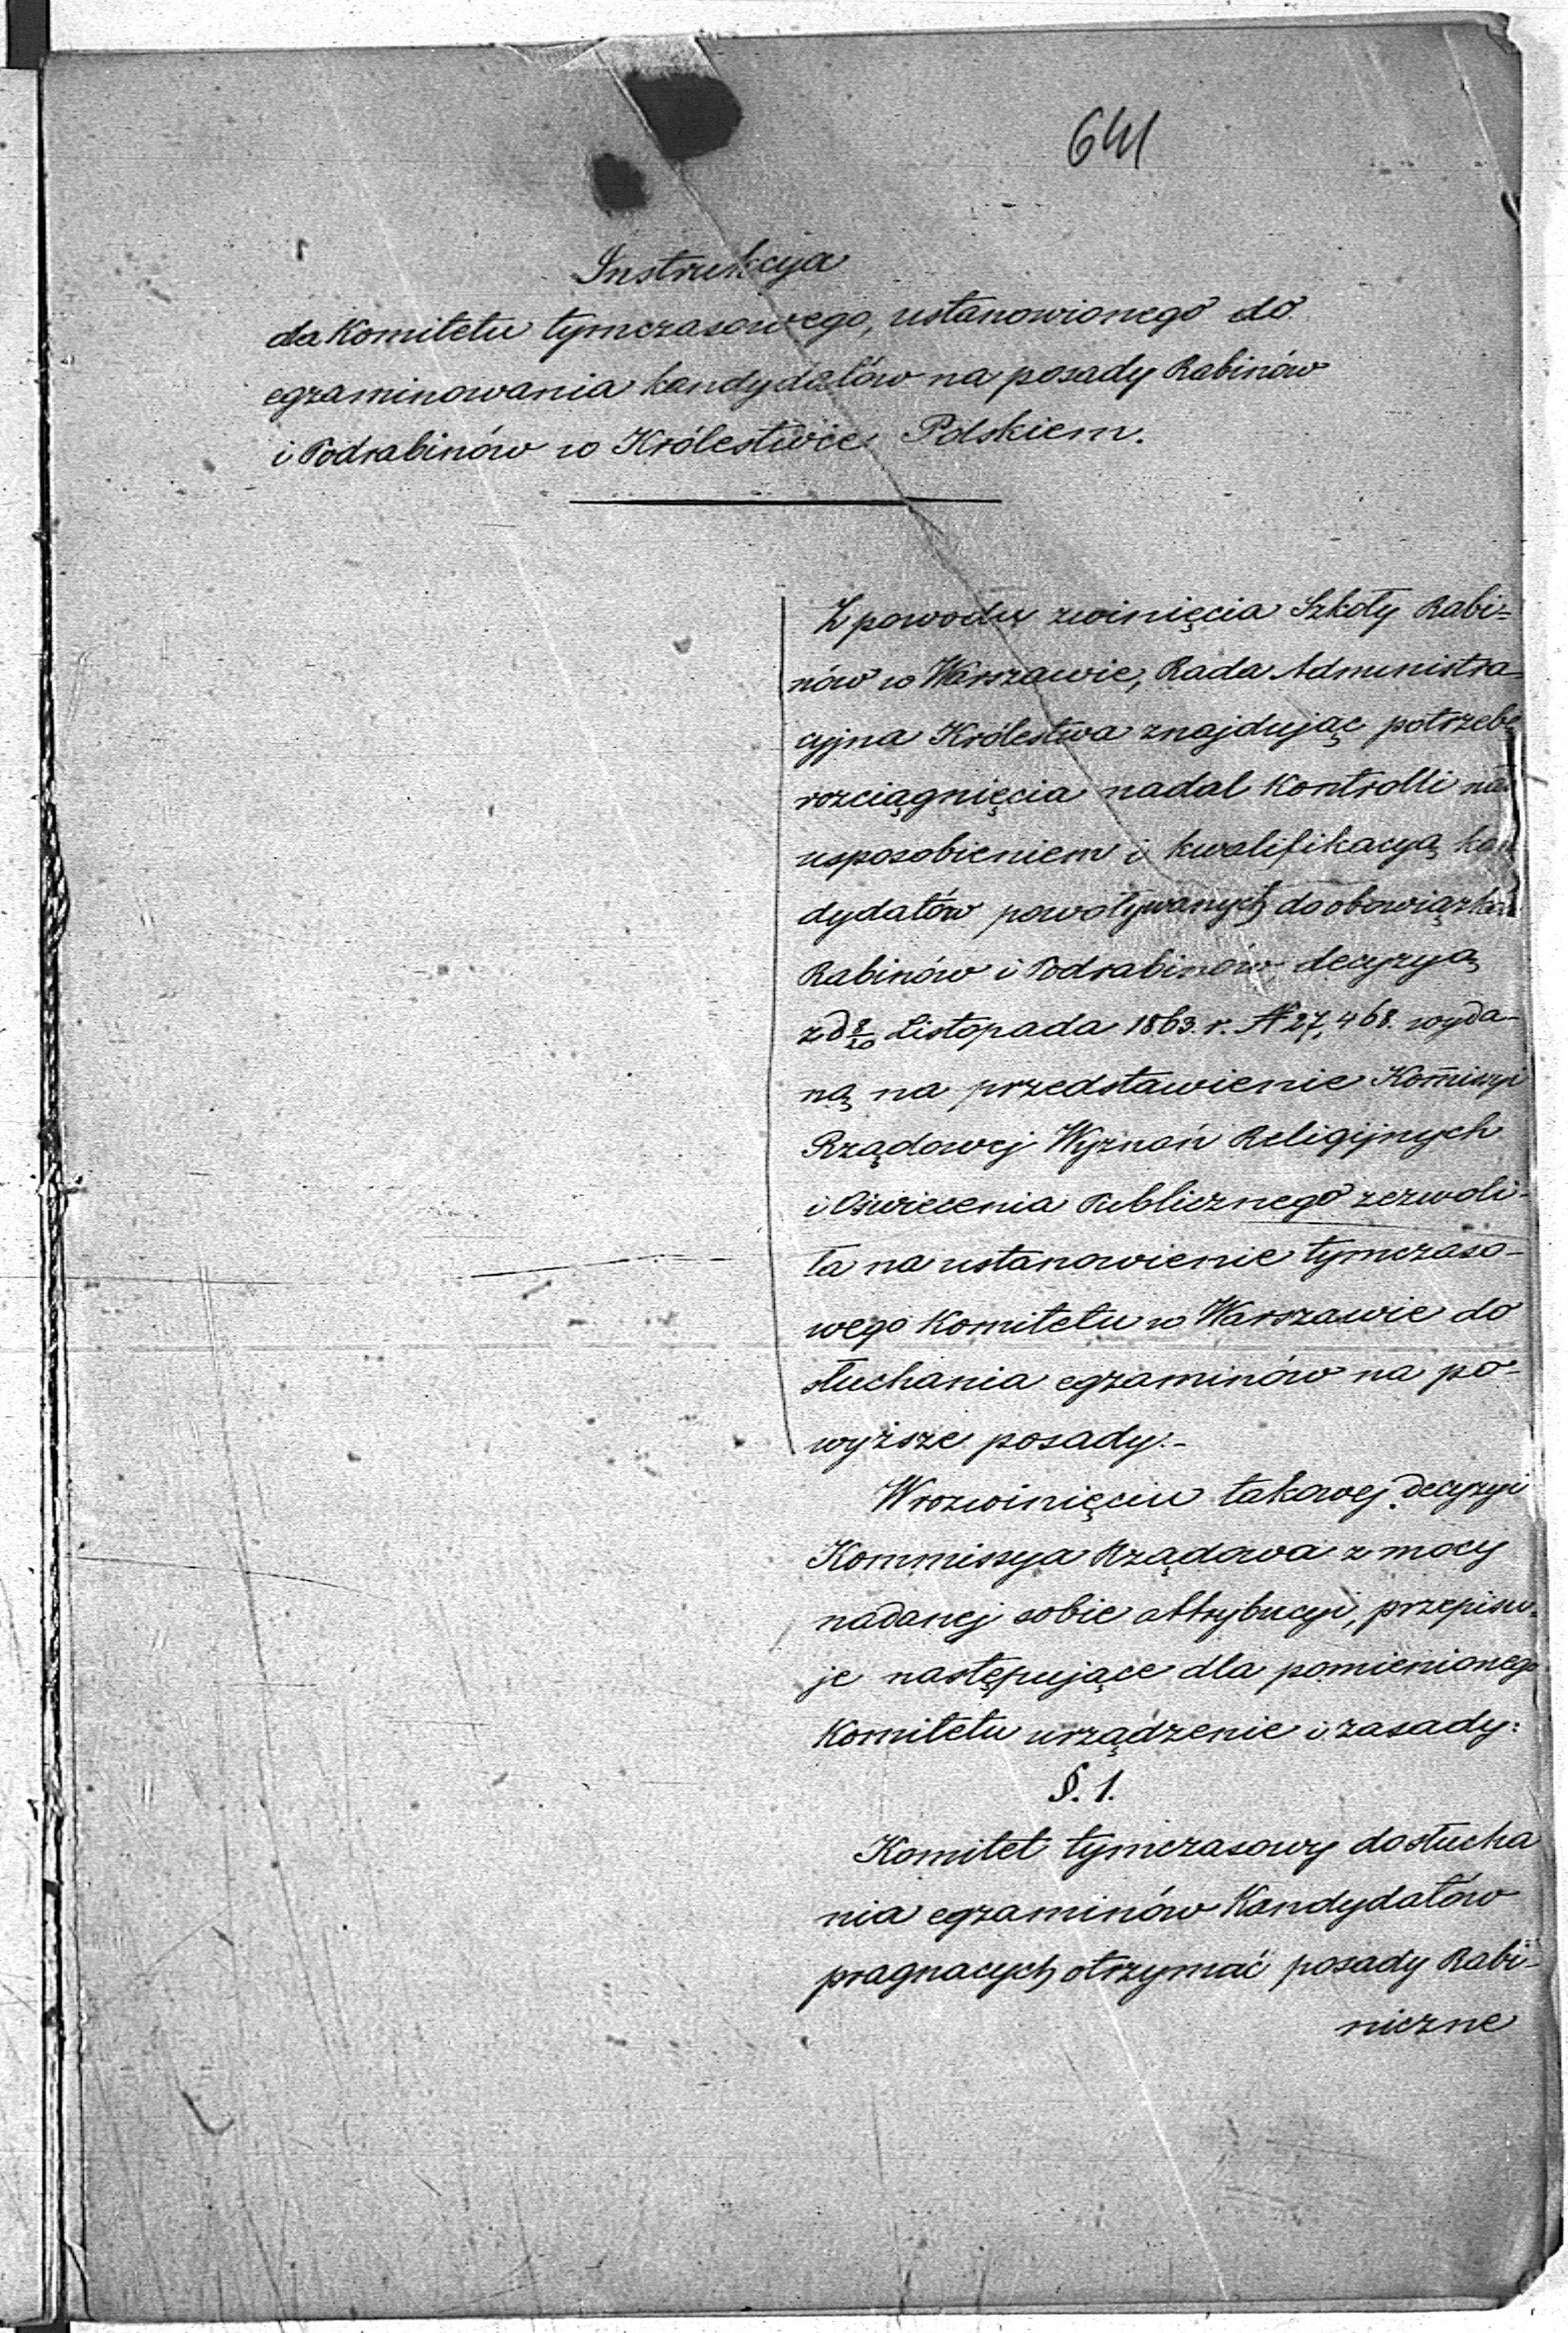 641
Instrukcya
dla Komitetu tymczasowego, ustanowionego do
egzaminowania kandydatów na posady Rabinów
i Podrabinów w Królestwie Polskiem.
Z powodu zwinięcia Szkoły Rabi=
nów w Warszawie, Rada Administra-
cyjna Królestwa znajdując potrzebę
rozciągnięcia nadal Kontrolli nad
usposobieniem i kwalifikacyą kan
dydatów powoływanych do obowiązków
Rabinów i Podrabinów decyzyą
z d 8/20 Listopada 1863. r. N 27,468. wyda-
ną na przedstawienie Komisyi
Rządowej Wyznań Religijnych
i Oświecenia Publicznego zezwoli-
ła na ustanowienie tymczaso-
wego Komitetu w Warszawie do
słuchania egzaminów na po-
wyższe posady.-
W rozwinięciu takowej decyzyi
Kommissya Rządowa z mocy
nadanej sobie attrybucyi, przepisu-
je następujące dla pomienionego
Komitetu urządzenie i zasady:
§. 1.
Komitet tymczasowy do słucha
nia egzaminów Kandydatów
pragnacych otrzymać posady Rabi-
niczne